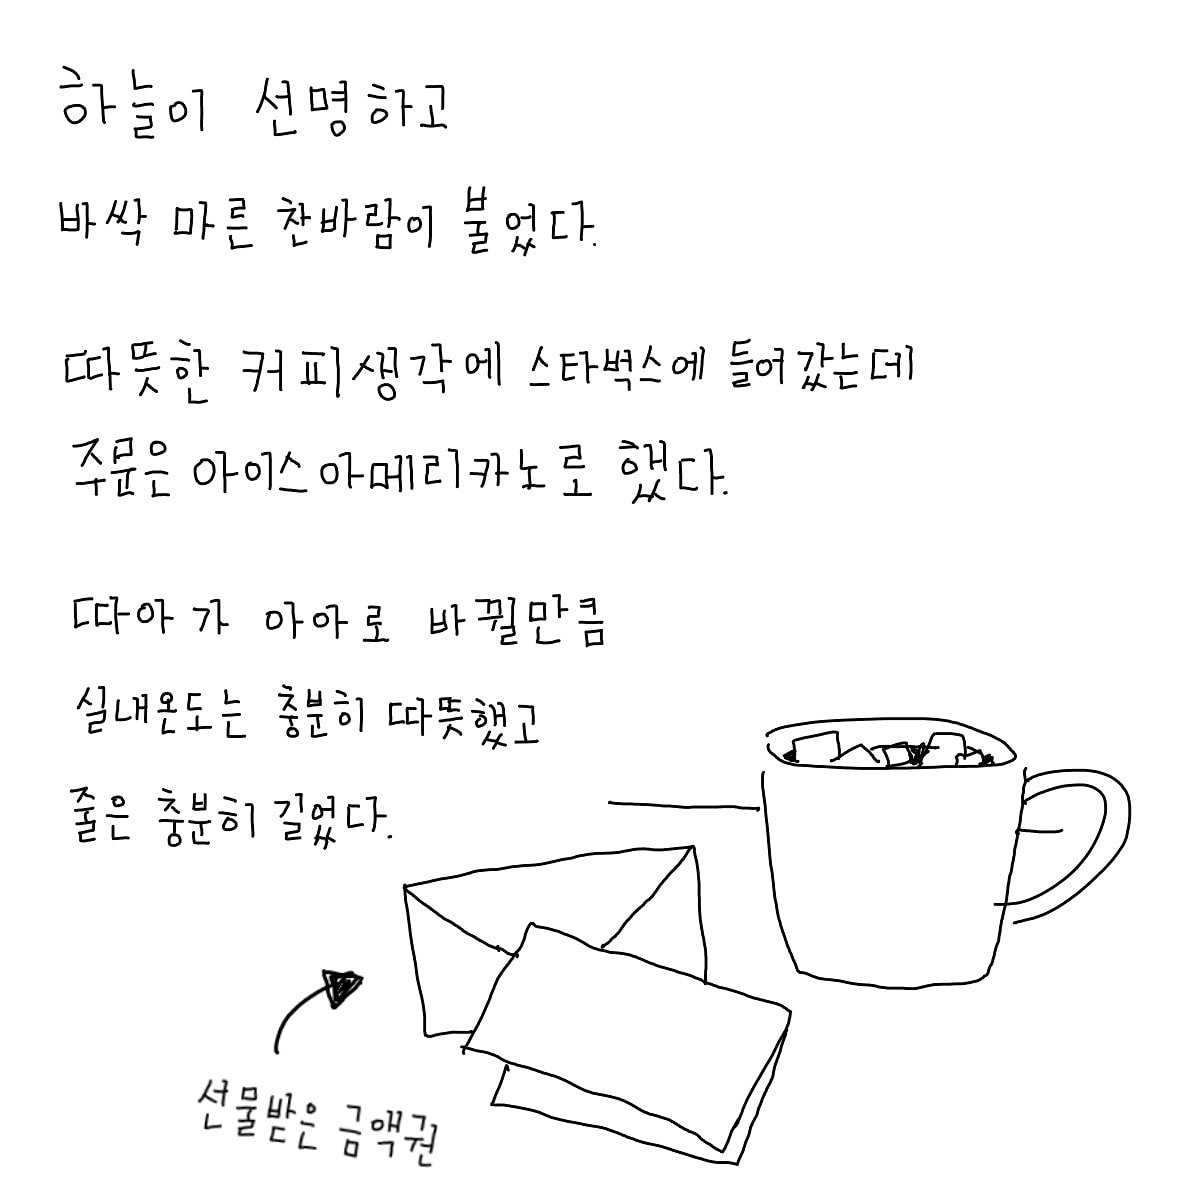 하늘이 선명하고
바싹 마른 찬바람이 불었다.
따뜻한 커피생각에 스타벅스에 들어갔는데
주문은 아이스아메리카노로 했다.
따아가 아아로 바뀔만큼
실내온도는 충분히 따뜻했고
줄은 충분히 길었다.
선물받은 금액권